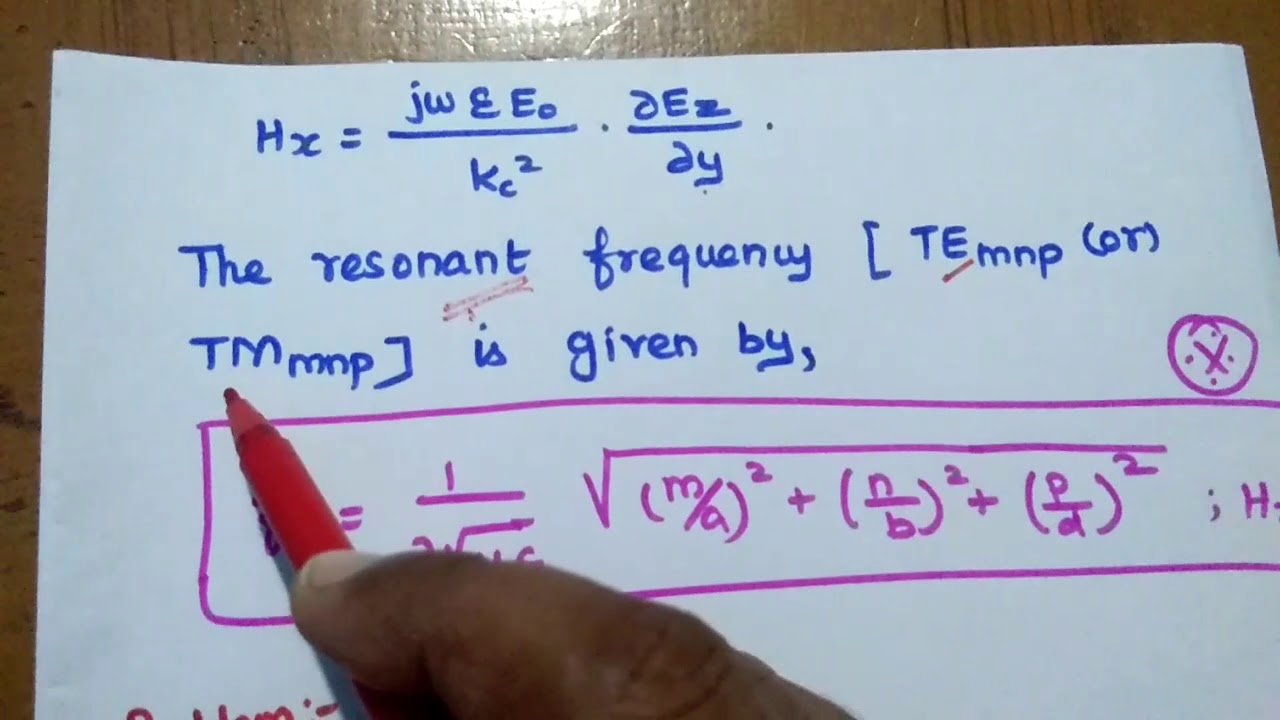 Hx = jω ε E₀ / Kc² · ∂Ez / ∂y .
The resonant frequency [ TEmnp (or)
TMmnp ] is given by,
= 1 / 2√με √(m/a)² + (n/b)² + (p/d)² ; H